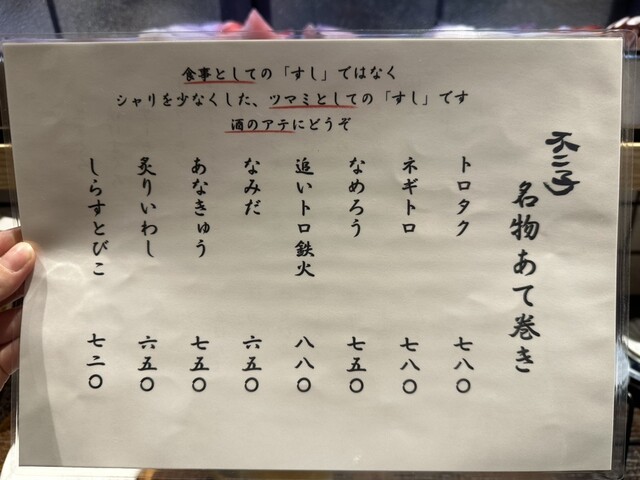 食事としての「すし」ではなく
シャリを少なくした、ツマミとしての「すし」です
酒のアテにどうぞ
不二子
名物あて巻き
トロタク 七八〇
ネギトロ 七八〇
なめろう 七五〇
追いトロ鉄火 八八〇
なみだ 六五〇
あなきゅう 七五〇
炙りいわし 六五〇
しらすとびこ 七二〇